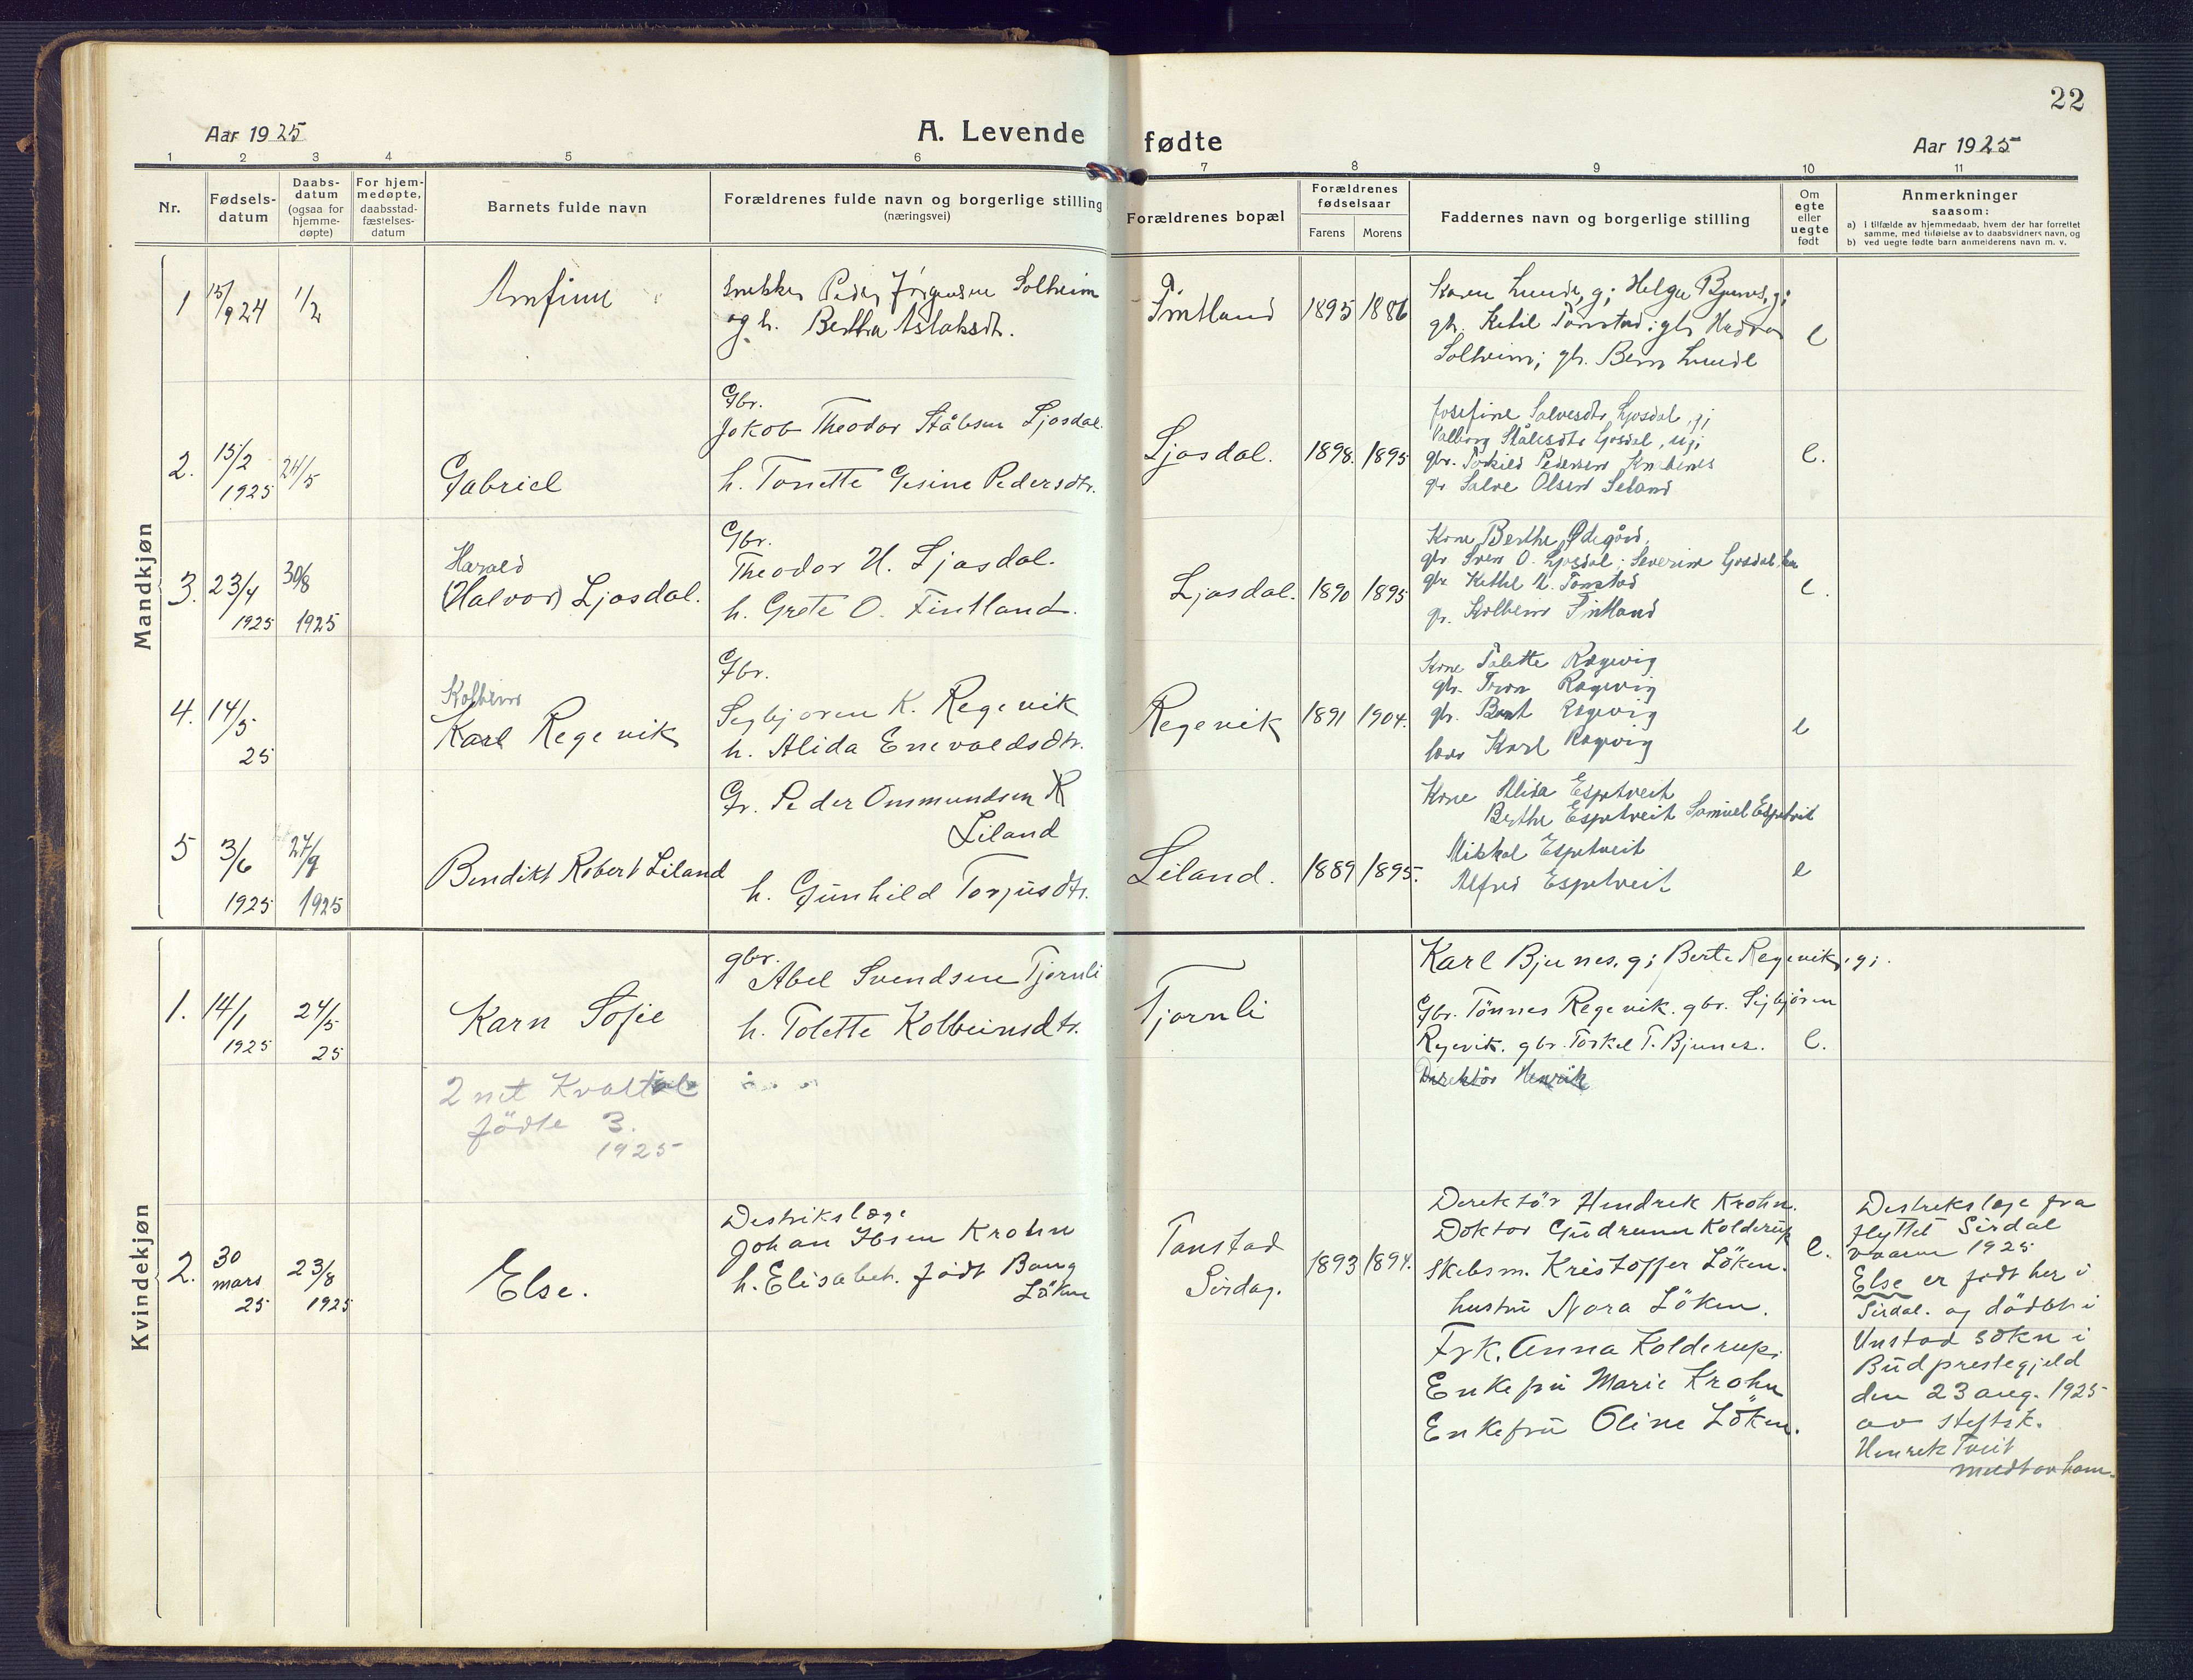 22
Aar 1925
A. Levende fødte
Aar 1925
1 2 3 4 5 6 7 8 9 10 11
Nr.
Fødsels-
datum
Daabs-
datum
(ogsaa for
hjemme-
døpte)
For hjem-
medøpte,
daabsstad-
fæstelses-
datum
Barnets fulde navn
Forældrenes fulde navn og borgerlige stilling
(næringsvei)
Forældrenes bopæl
Forældrenes
fødselsaar
Farens Morens
Faddernes navn og borgerlige stilling
Om
egte
eller
uegte
født
Anmerkninger
saasom:
a) i tilfælde av hjemmedaab, hvem der har forrettet
samme, med tilføielse av to daabsvidners navn, og
b) ved uegte fødte barn anmelderens navn m. v.
Mandkjøn
1
15/9 24
1/2
Arnfinn
Snekker Peder Jörgensen Solheim
og h. Bertha Aslaksdtr.
Fintland
1895 1886
Karen Lunde, g; Helga Bjunes, g;
gbr. Ketil Tonstad; gbr Halvor
Solheim; gbr. Bern Lunde
e
2.
15/2
1925
24/5
Gabriel
Gbr.
Jakob Theodor Stålesen Ljosdal.
h. Tonette Gesine Pedersdtr.
Ljosdal.
1898. 1895
Josefine Salvesdtr Ljosdal, g;
Valborg Stålesdtr Ljosdal, ug;
gbr. Torkild Pedersen Knabenes
gbr Salve Olsen Seland
e.
3.
23/4
1925
30/8
1925
Harald
(Halvor) Ljosdal.
Gbr.
Theodor H. Ljosdal.
h. Grete O. Fintland.
Ljosdal.
1890 1895
Kone Berthe Ødegård.
gbr Sven O. Ljosdal; Severine Ljosdal,
gbr Kethil Tonstad
gbr. Kolbein Fintland
e.
4.
14/5
25
Kolbein
Karl Regevik
Gbr.
Sigbjoren K. Regevik
h. Alida Enevoldsdtr.
Regevik
1891 1904.
Kone Tolette Rægevig
gbr. Tron Rægevig
gbr. Bent Rægevig
Karl Rægevig
e
5
3/6
1925
27/9
1925
Bendikt Robert Liland
Gr. Peder Ommundsen
Liland
h. Gunhild Torjusdtr.
Liland.
1889 1895.
Kone Alida Espetveit
Berthe Espetveit Samuel Espetveit
Mikkal Espetveit
Alfred Espetveit
e
Kvindekjøn
1.
14/1
1925
24/5
25
Karn Sofie
gbr.
Abel Svendsen Tjornli
h. Tolette Kolbeinsdtr.
Tjornli
Karl Bjunes, g; Berte Regevik, g;
Gbr. Tönnes Regevik. gbr. Sigbjören
Regevik. gbr. Torkel T. Bjunes.
Direktör Henrik
e.
2 net Kvartal
födte 3.
1925
2.
30
mars
25
23/8
1925
Else.
Destrikslæge
Johan Ibsen Krohn
h. Elisabet. födt Bang
Löken
Tonstad
Sirdag.
1893 1894.
Derektör Hendrek Krohn.
Doktor Gudrunn Kolderup
Skibsm. Kristoffer Löken.
hustru Nora Löken.
Frk. Anna Kolderup.
Enkefru Marie Krohn
Enkefru Oline Löken.
e.
Destrekslæge fra
flyttet Sirdal
vaaren 1925
Else er födt her i
Sirdal. og dödbt i
Unstad sokn i
Bud prestegjeld
den 23 aug. 1925
av
Henrek Tveit